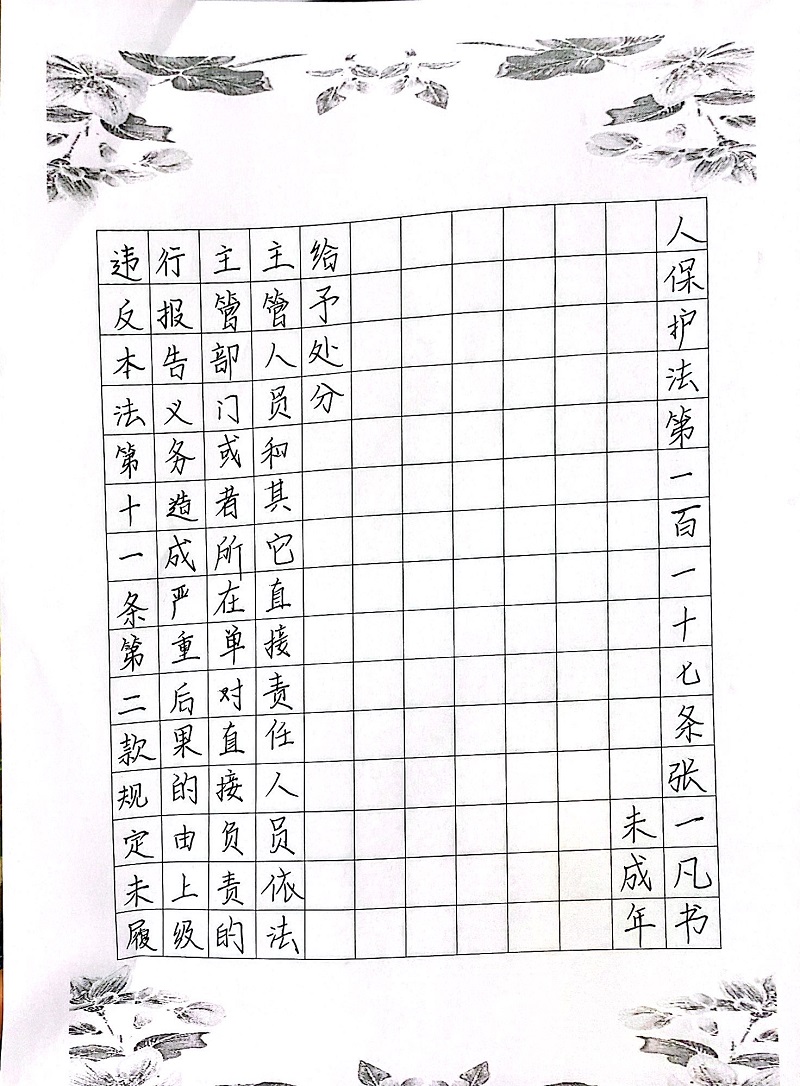 违反本法第十一条第二款规定未履
行报告义务造成严重后果的由上级
主管部门或者所在单对直接负责的
主管人员和其它直接责任人员依法
给予处分
未成年
人保护法第一百一十七条张一凡书